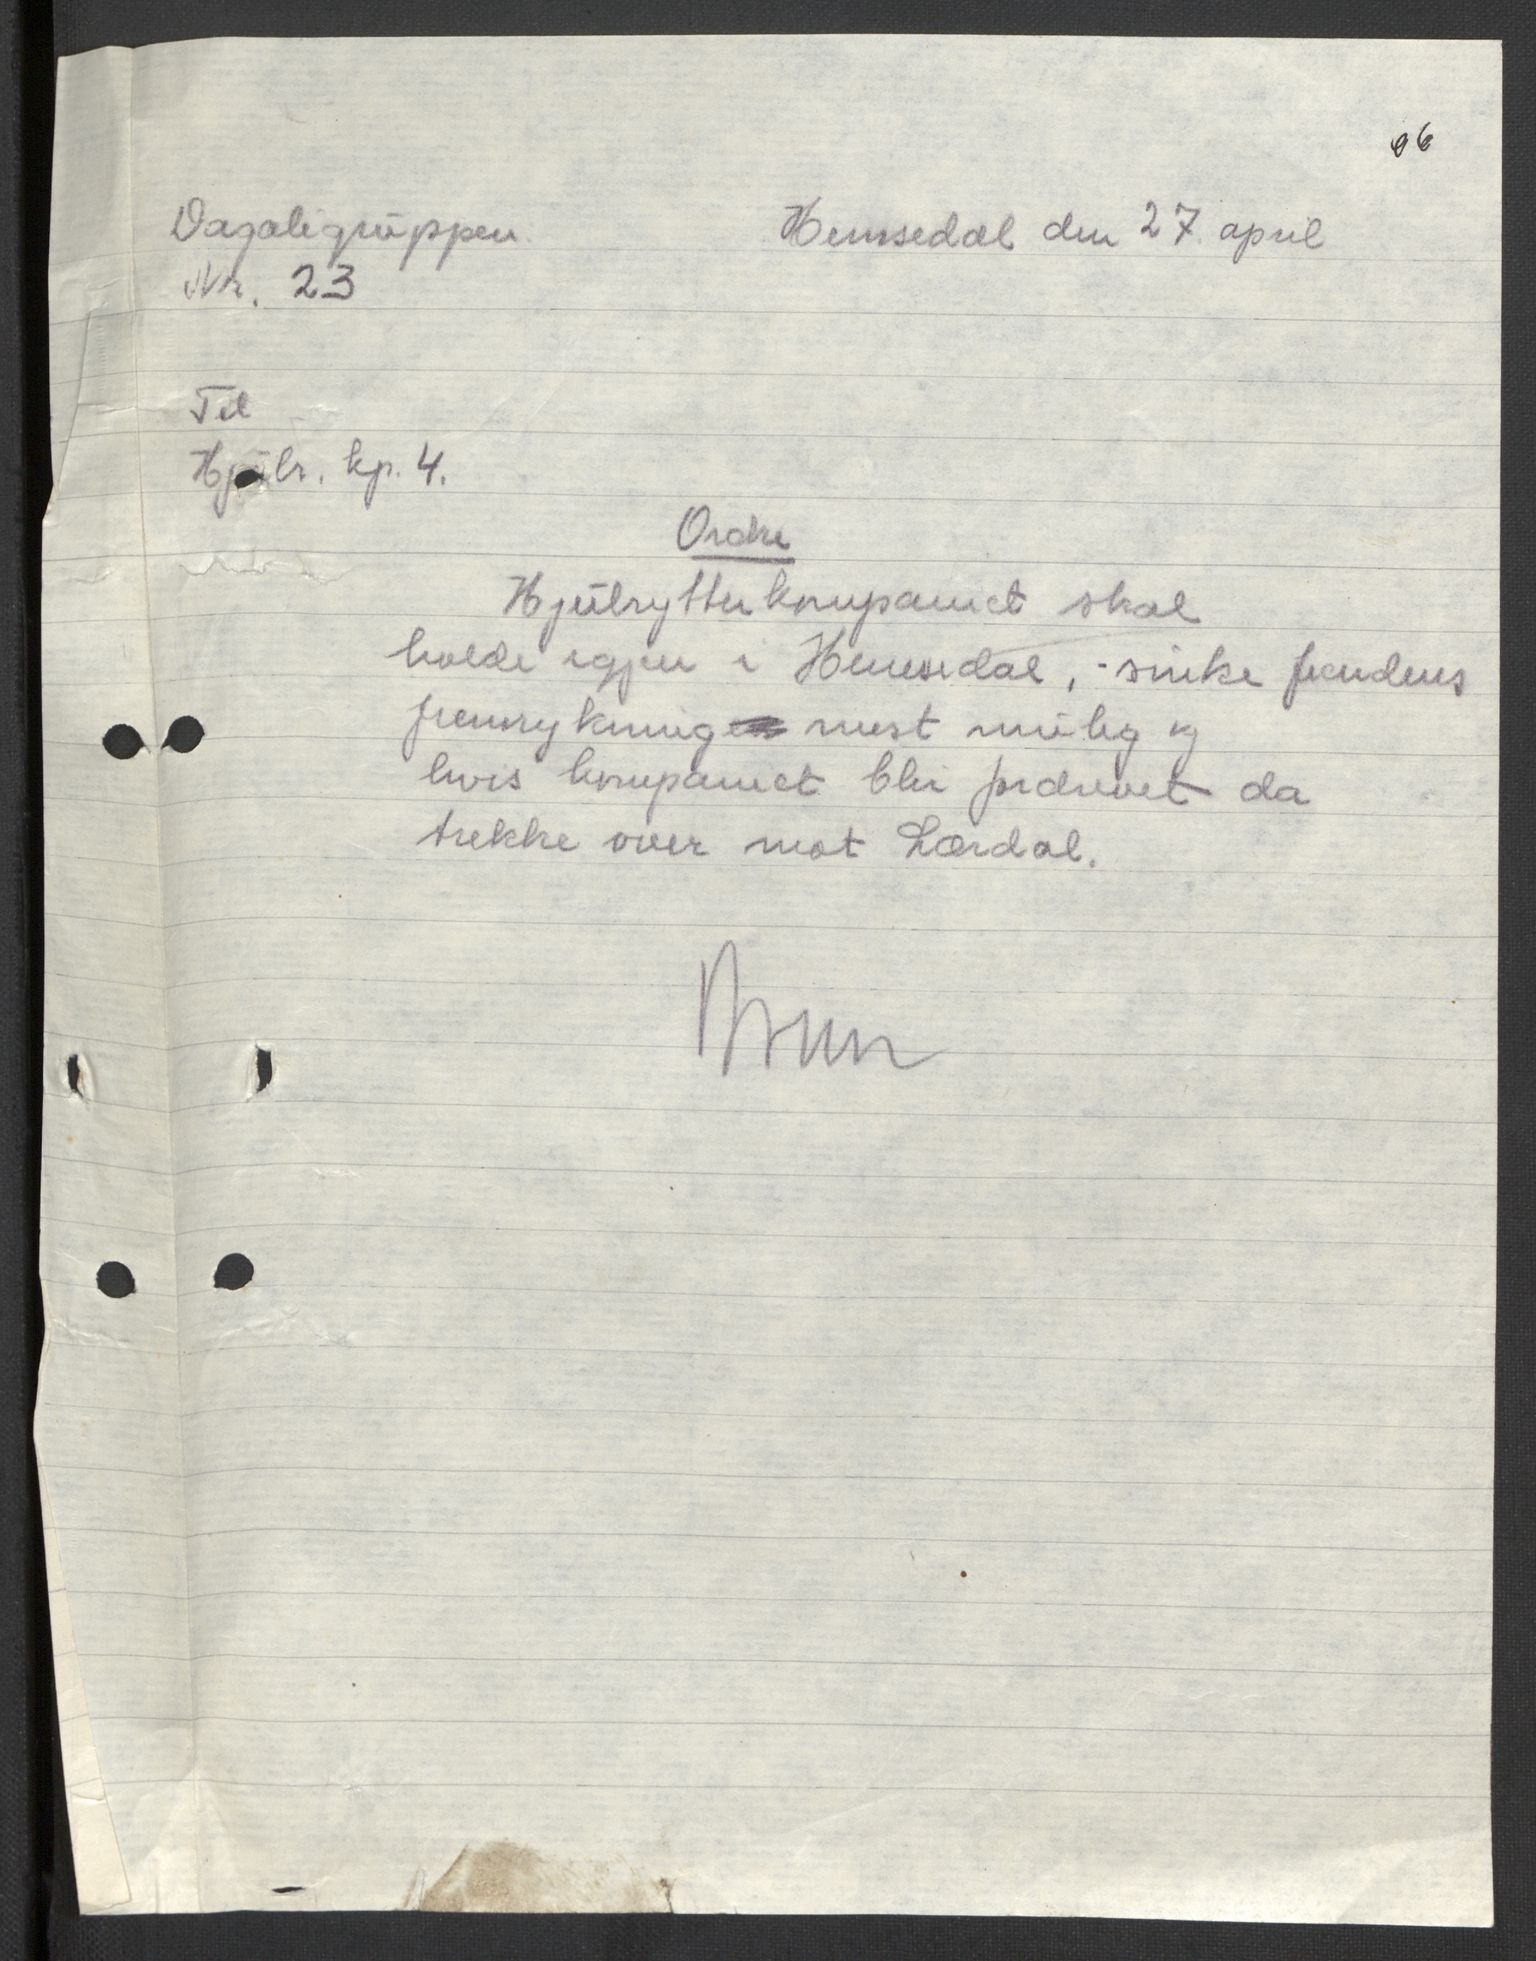 96
Dagaligruppen
Hemsedal den 27 april
Nr. 23
Til
Hjulr. kp. 4.
Ordre
Hjulrytterkompaniet skal
holde igjen i Hemsedal, - sinke fiendens
fremrykning mest mulig og
hvis kompaniet blir fordrevet da
trekke over mot Lærdal.
Brun